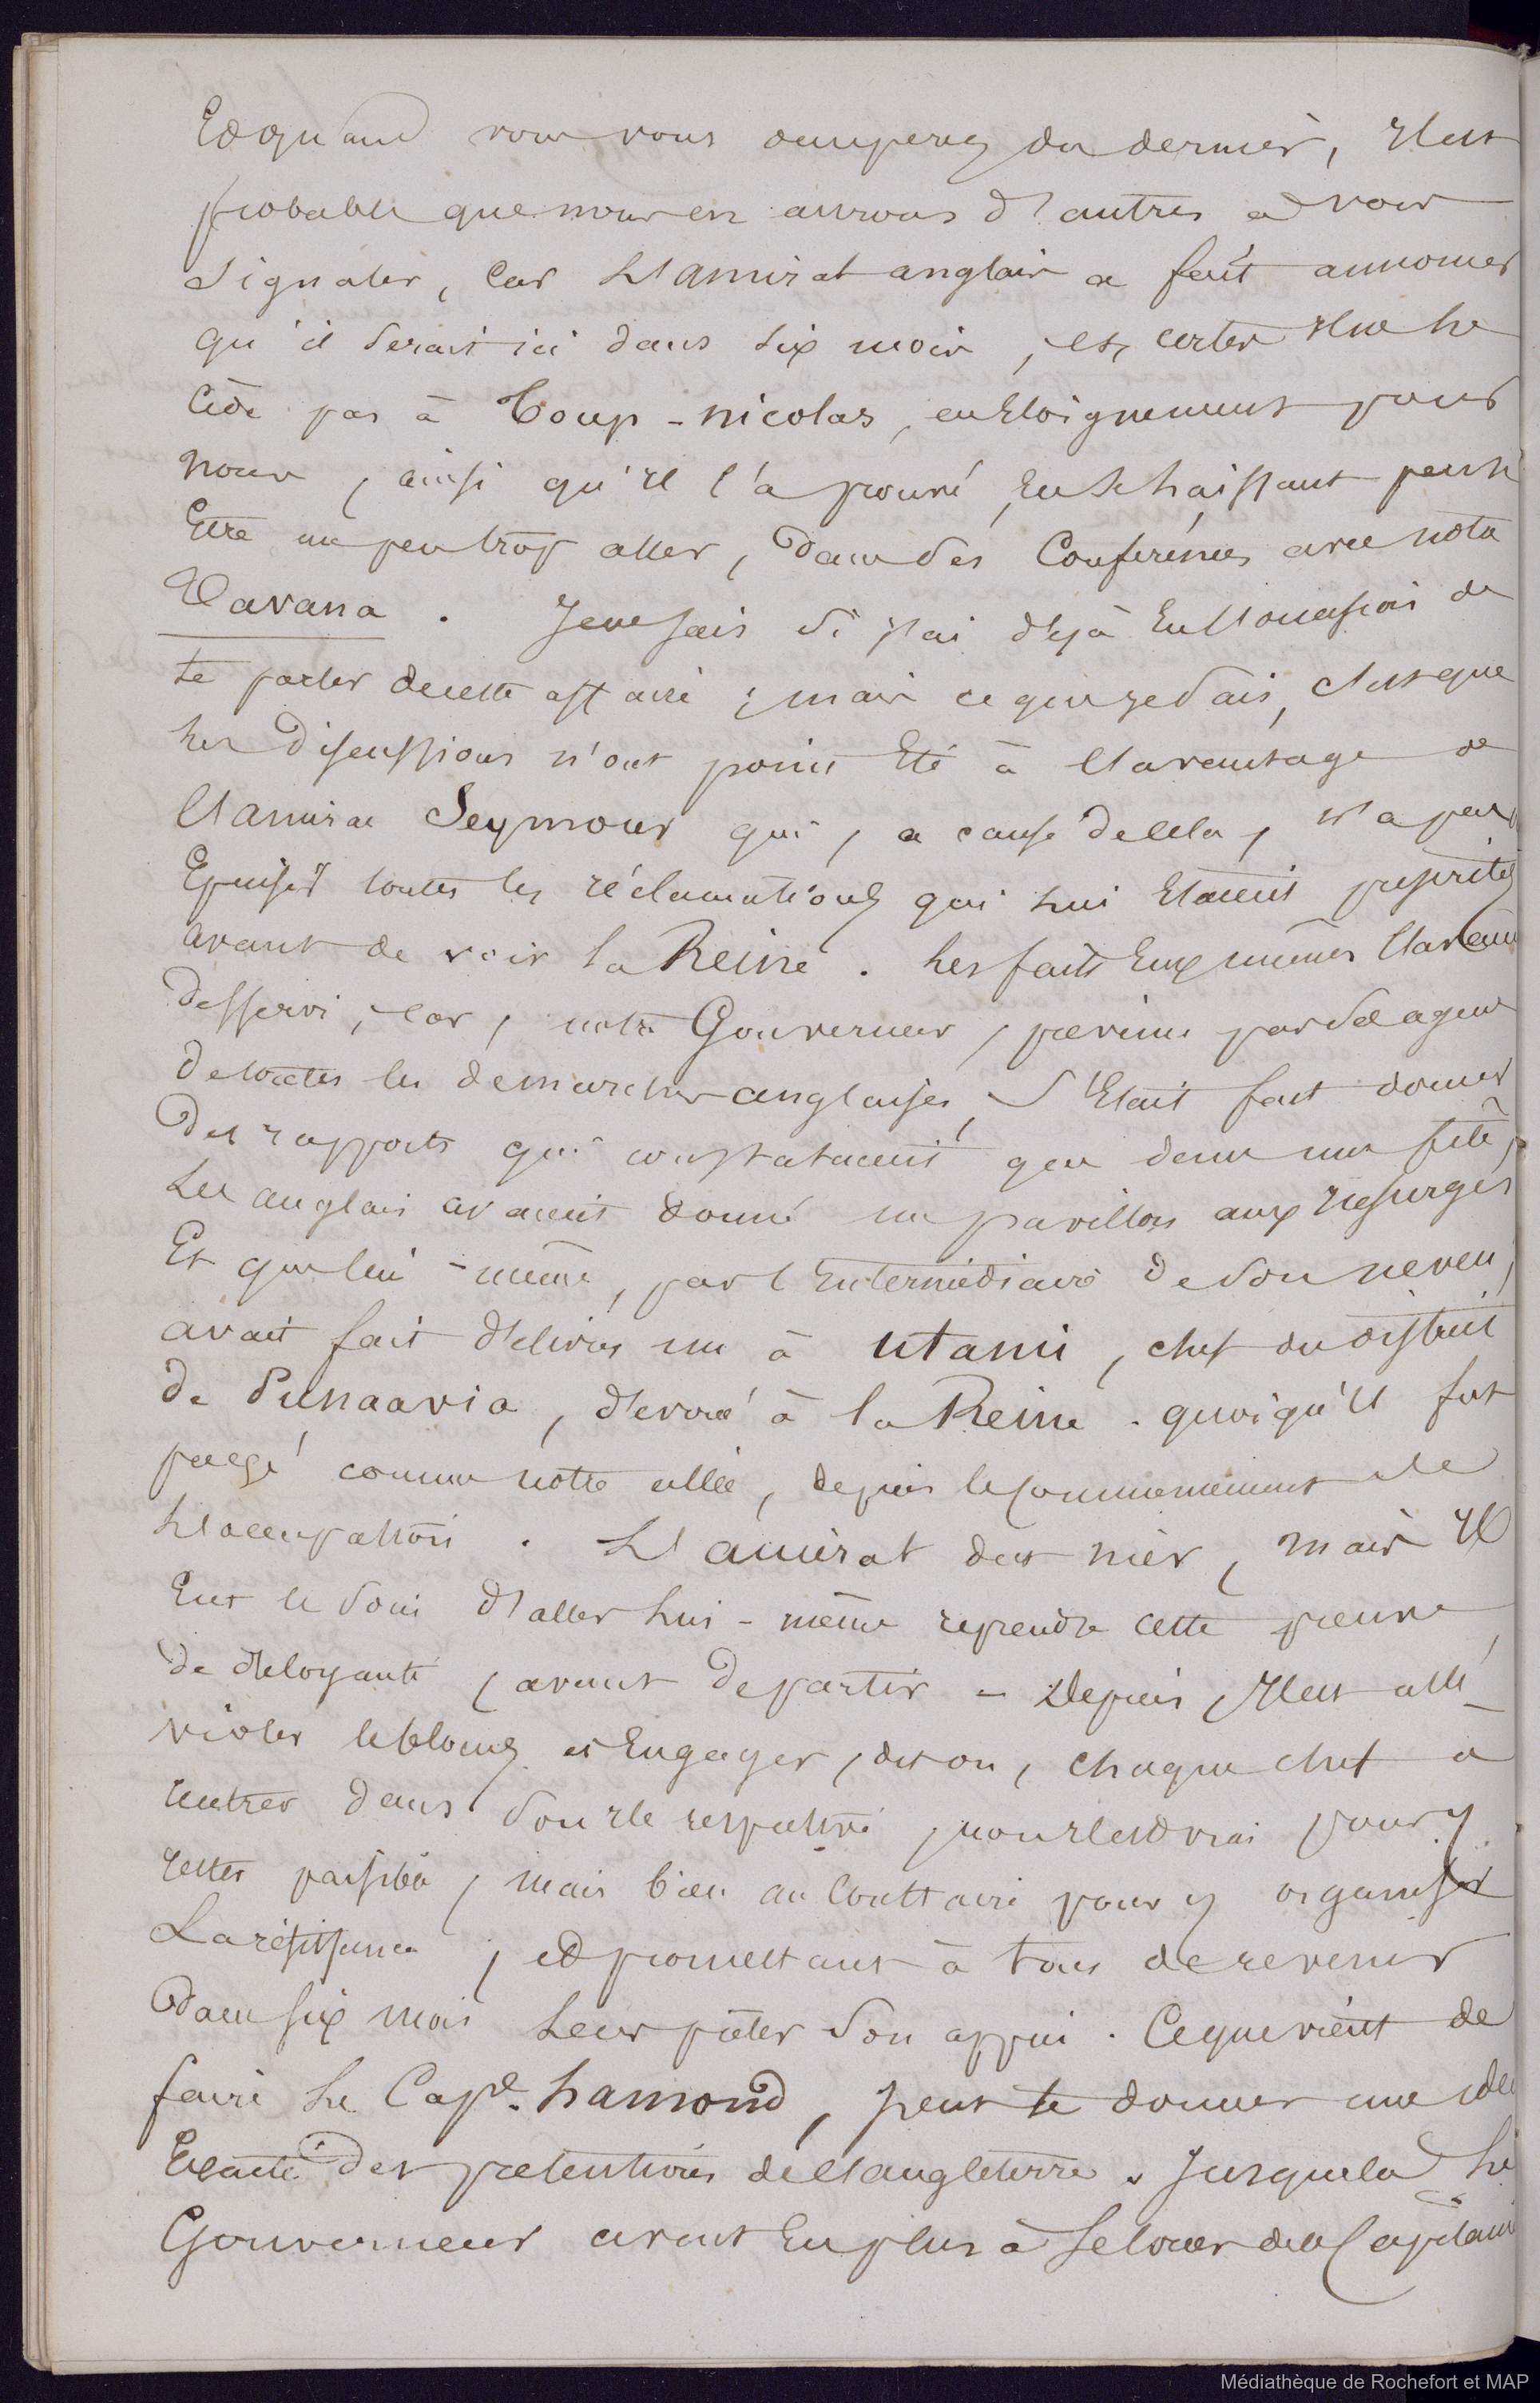 Et quand vous vous occuperez du dernier, il est
probable que nous en aurons d'autres à vous
signaler, car l'amiral anglais a fait annoncer
qu'il serait ici dans six mois, et, certes il ne le
cède pas à Toup-nicolas, en éloignement pour
nous, ainsi qu'il l'a prouvé, en se laissant peut
être un peu trop aller, dans ses Conférences avec notre
Tavana. Je ne sais si j'ai déjà eu l'occasion de
te parler de cette affaire; mais ce que je sais, c'est que
les discussions n'ont point été à l'avantage de
l'amiral Seymour qui, a cause de cela, n'a pas
épuisé toutes les réclamations qui lui étaient prescrites
avant de voir la Reine. Les faits eux mêmes l'avaient
desservi, car, notre Gouverneur, prévenu par ses agens
de toutes les démarches anglaises, s'était fait donner
des rapports qui constataient que dans une fête,
les anglais avaient donné un pavillon aux insurgés
Et que lui-même, par l'entermédiaire de son neveu,
avait fait délivrer un à utami, chef du district
de Punaavia, dévoué à la Reine. quoiqu'il fut
passé comme notre allié, depuis le commencement de
l'occupation. L'amiral dut nier, mais il
eut le soin d'aller lui-même reprendre cette preuve
de déloyauté, avant de partir - Depuis, il est allé
violer le blocus et engager, dit on, chaque chef à
rentrer dans son ile respective, non il est vrai pour y
rester paisible, mais bien au contraire pour y organiser
La résistance, et promettant à tous de revenir
dans six mois leur prêter son appui. Ce que vient de
faire le Cape. hamond, peut te donner une idée
Exacte des prétentions de l'angleterre. Jusque là le
Gouverneur avait eu plus à se louer de ce Capitaine
Médiathèque de Rochefort et MAP